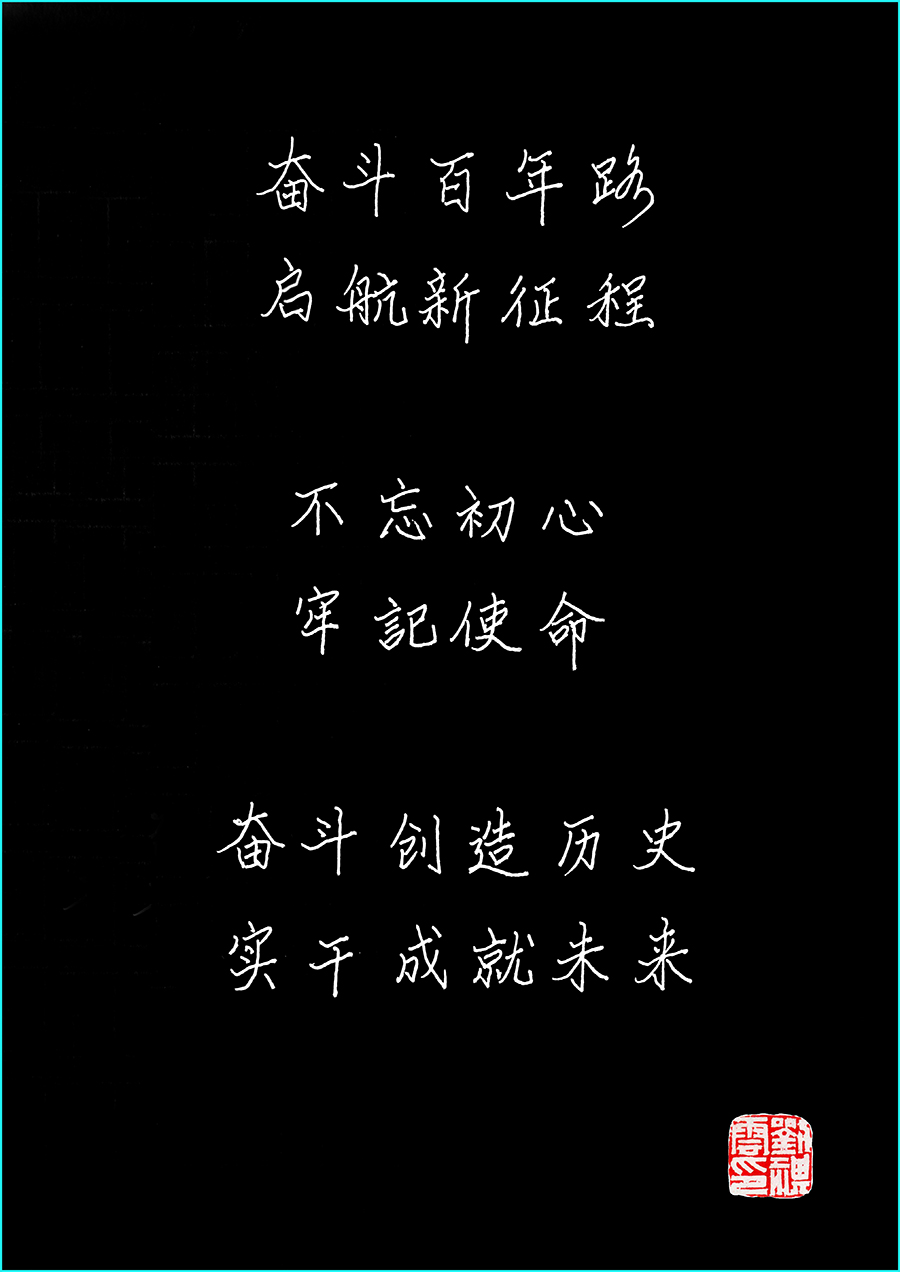 奋斗百年路
启航新征程
不忘初心
牢記使命
奋斗创造历史
实干成就未来
劉祺雲印